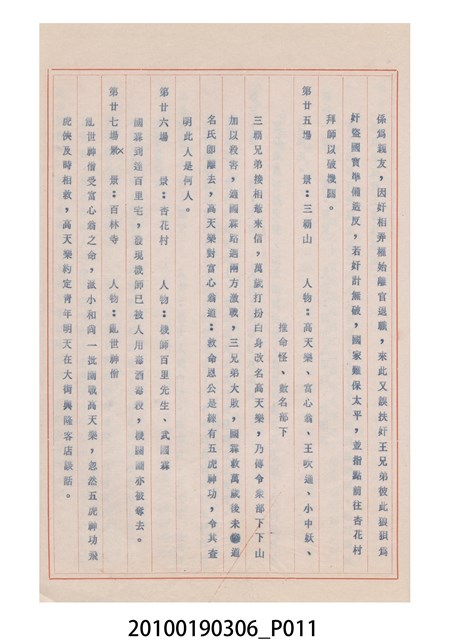 係為親友，因奸相弄權始離官退職，來此又親扶奸王兄弟彼此
奸盜國寶準備造反，若奸計無破，國家難保太平，並指點前往杏花村
拜師以破機關。
第廿五場　景：三霸山　人物：高天樂、富心翁、王吹通、小中妖、
推命怪、數名部下
三霸兄弟接相爺來信，萬歲打扮白身改名高天樂，乃傳令眾部下下山
加以殺害，適國霖路過兩方激戰，三兄弟大敗，國霖救萬歲後未道
名氏即離去，高天樂對富心翁道：救命恩公是練有五虎神功，令其查
明此人是何人。
第廿六場　景：杏花村　人物：機師百里先生、武國霖
國霖到達百里宅，發現機師已被人用毒酒毒殺，機關圖亦被奪去。
第廿七場景　景：百林寺　人物：亂世神僧
亂世神僧受富心翁之命，派小和尚一批圍戰高天樂，忽然五虎神功飛
虎俠及時相救，高天樂約定青年明天在大街興隆客店談話。
20100190306_P011